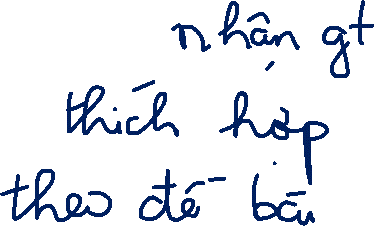 nhận gt
thích hợp
theo đế bài